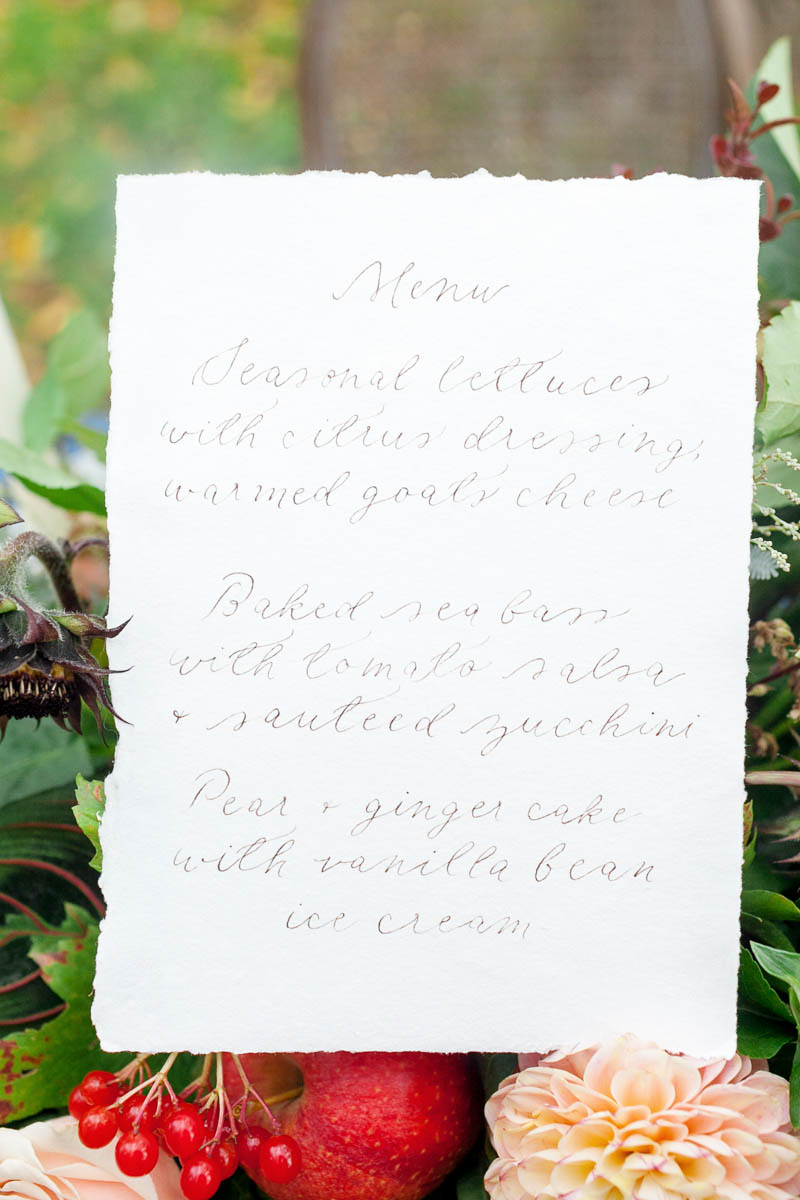 Menu
Seasonal lettuces
with citrus dressing,
warmed goats cheese
Baked sea bass
with tomato salsa
+ sauteed zucchini
Pear + ginger cake
with vanilla bean
ice cream